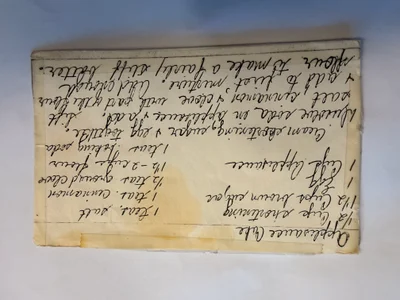 Applesauce Cake
1/2 Cup shortning 1 teas. salt
1 1/2 Cups brown sugar 1 teas. cinnamon
1 Egg 1/2 teas ground clove
1 Cup applesauce 1 1/2 - 2 cups flour
1 teas baking soda
Cream shortning, sugar & egg together.
Dissolve soda in applesauce & add. Sift
salt, cinnamon & clove with part of the flour
& add to first mixture. Add enough
flour to make a fairly stiff batter.